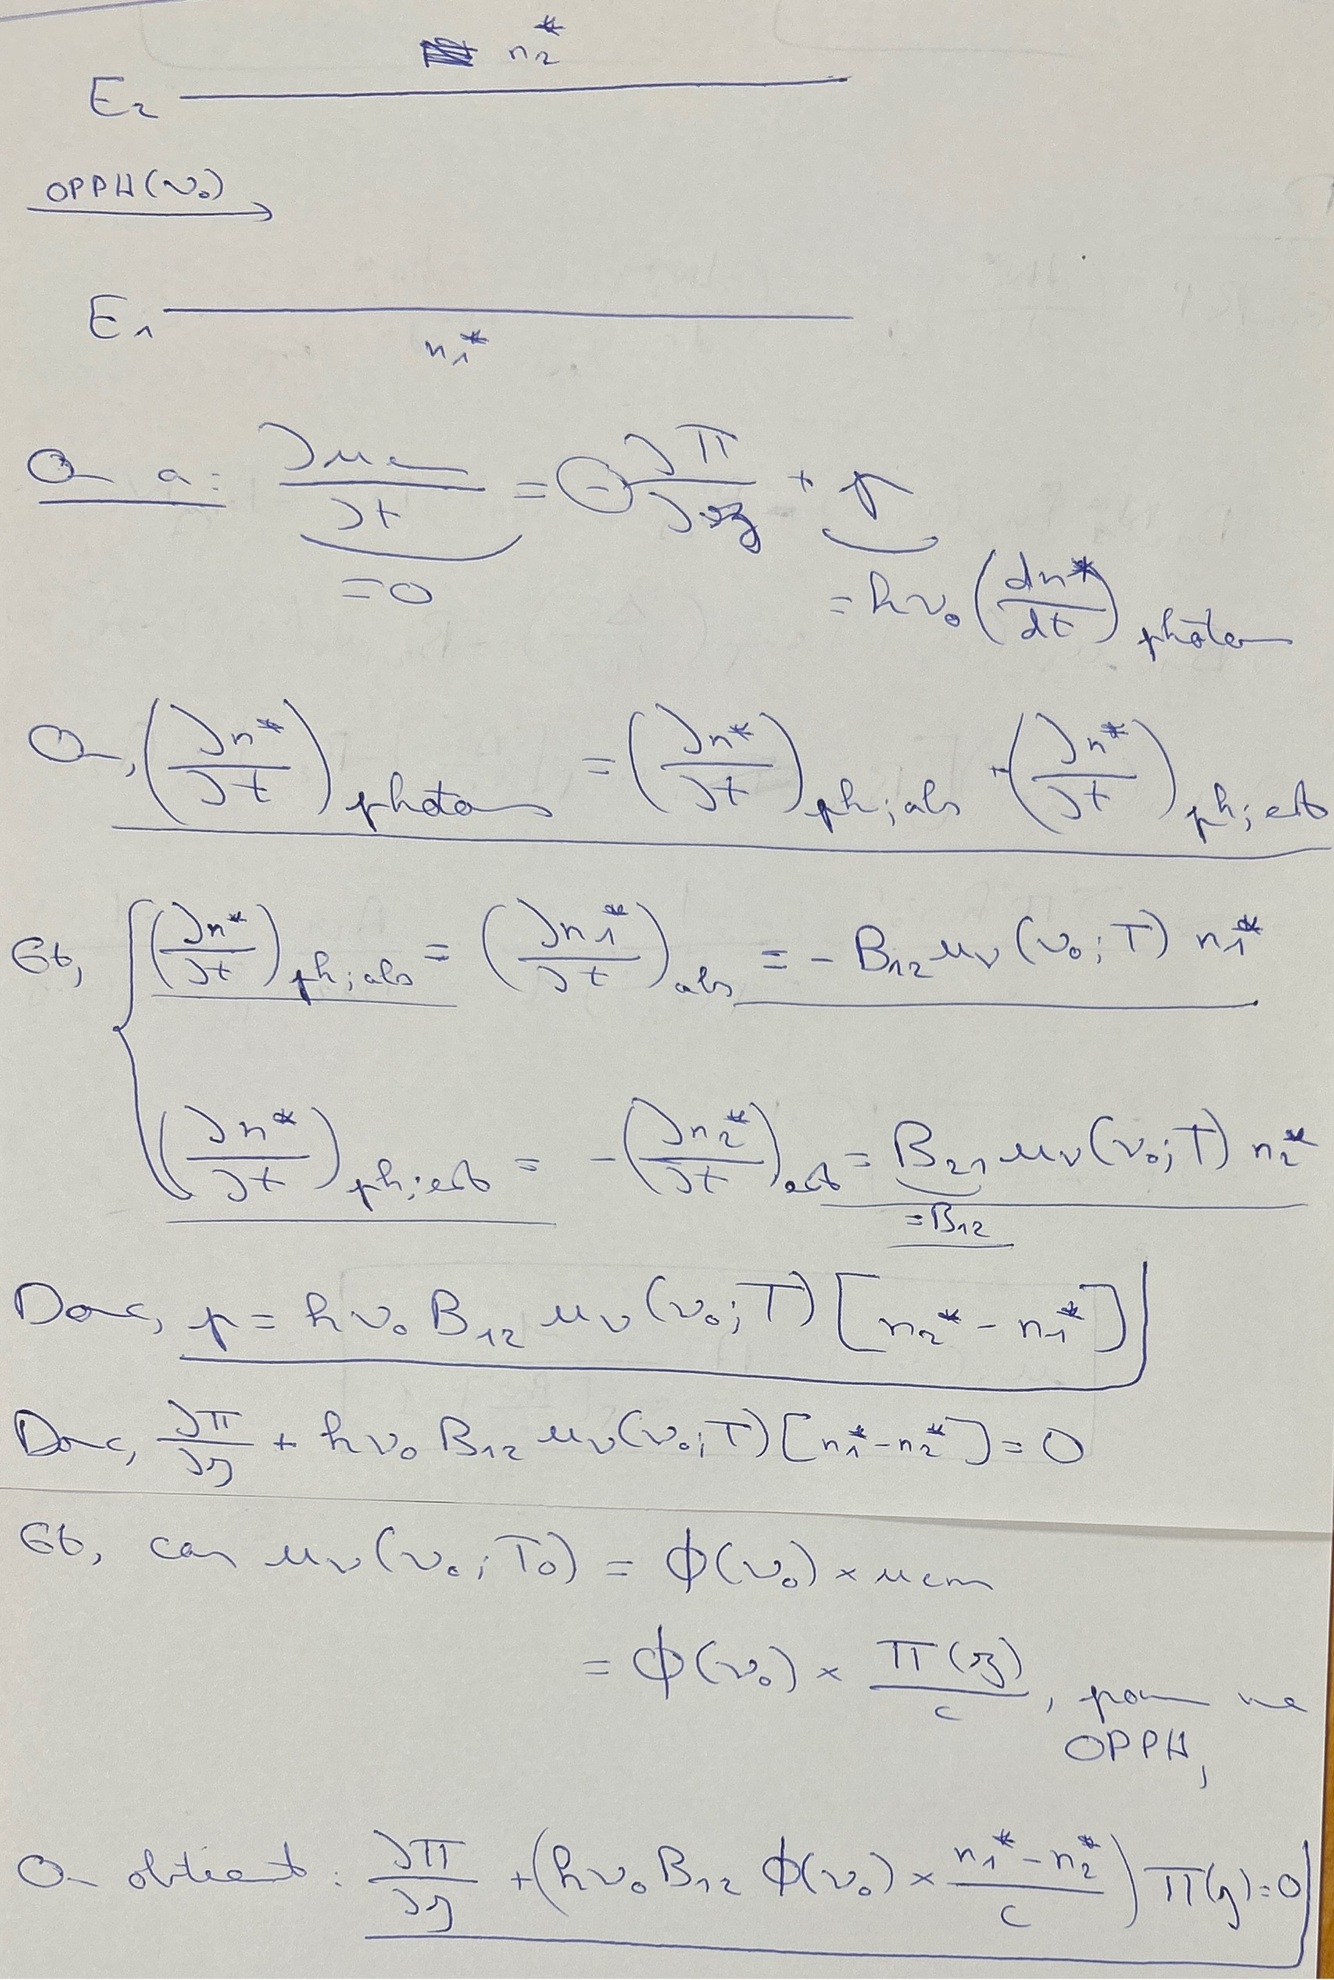 n₂*
E₂
OPPH(ν₀)
E₁
n₁*
On a : ∂u_em/∂t = ⊖ ∂Π/∂z + p
= 0
= hν₀ (dn*/dt)photon
On, (∂n*/∂t)photons = (∂n*/∂t)ph;abs + (∂n*/∂t)ph;est
Et, { (∂n*/∂t)ph;abs = (∂n₁*/∂t)abs = - B₁₂ u_ν(ν₀;T) n₁*
(∂n*/∂t)ph;est = -(∂n₂*/∂t)est = B₂₁ u_ν(ν₀;T) n₂*
= B₁₂
Donc, p = hν₀ B₁₂ u_ν(ν₀;T) [n₂* - n₁*]
Donc, ∂Π/∂z + hν₀ B₁₂ u_ν(ν₀;T) [n₁* - n₂*] = 0
Et, car u_ν(ν₀;T₀) = ϕ(ν₀) × u_em
= ϕ(ν₀) × Π(z)/c, pour une
OPPH,
On obtient : ∂Π/∂z + (hν₀ B₁₂ ϕ(ν₀) × (n₁* - n₂*)/c) Π(z) = 0